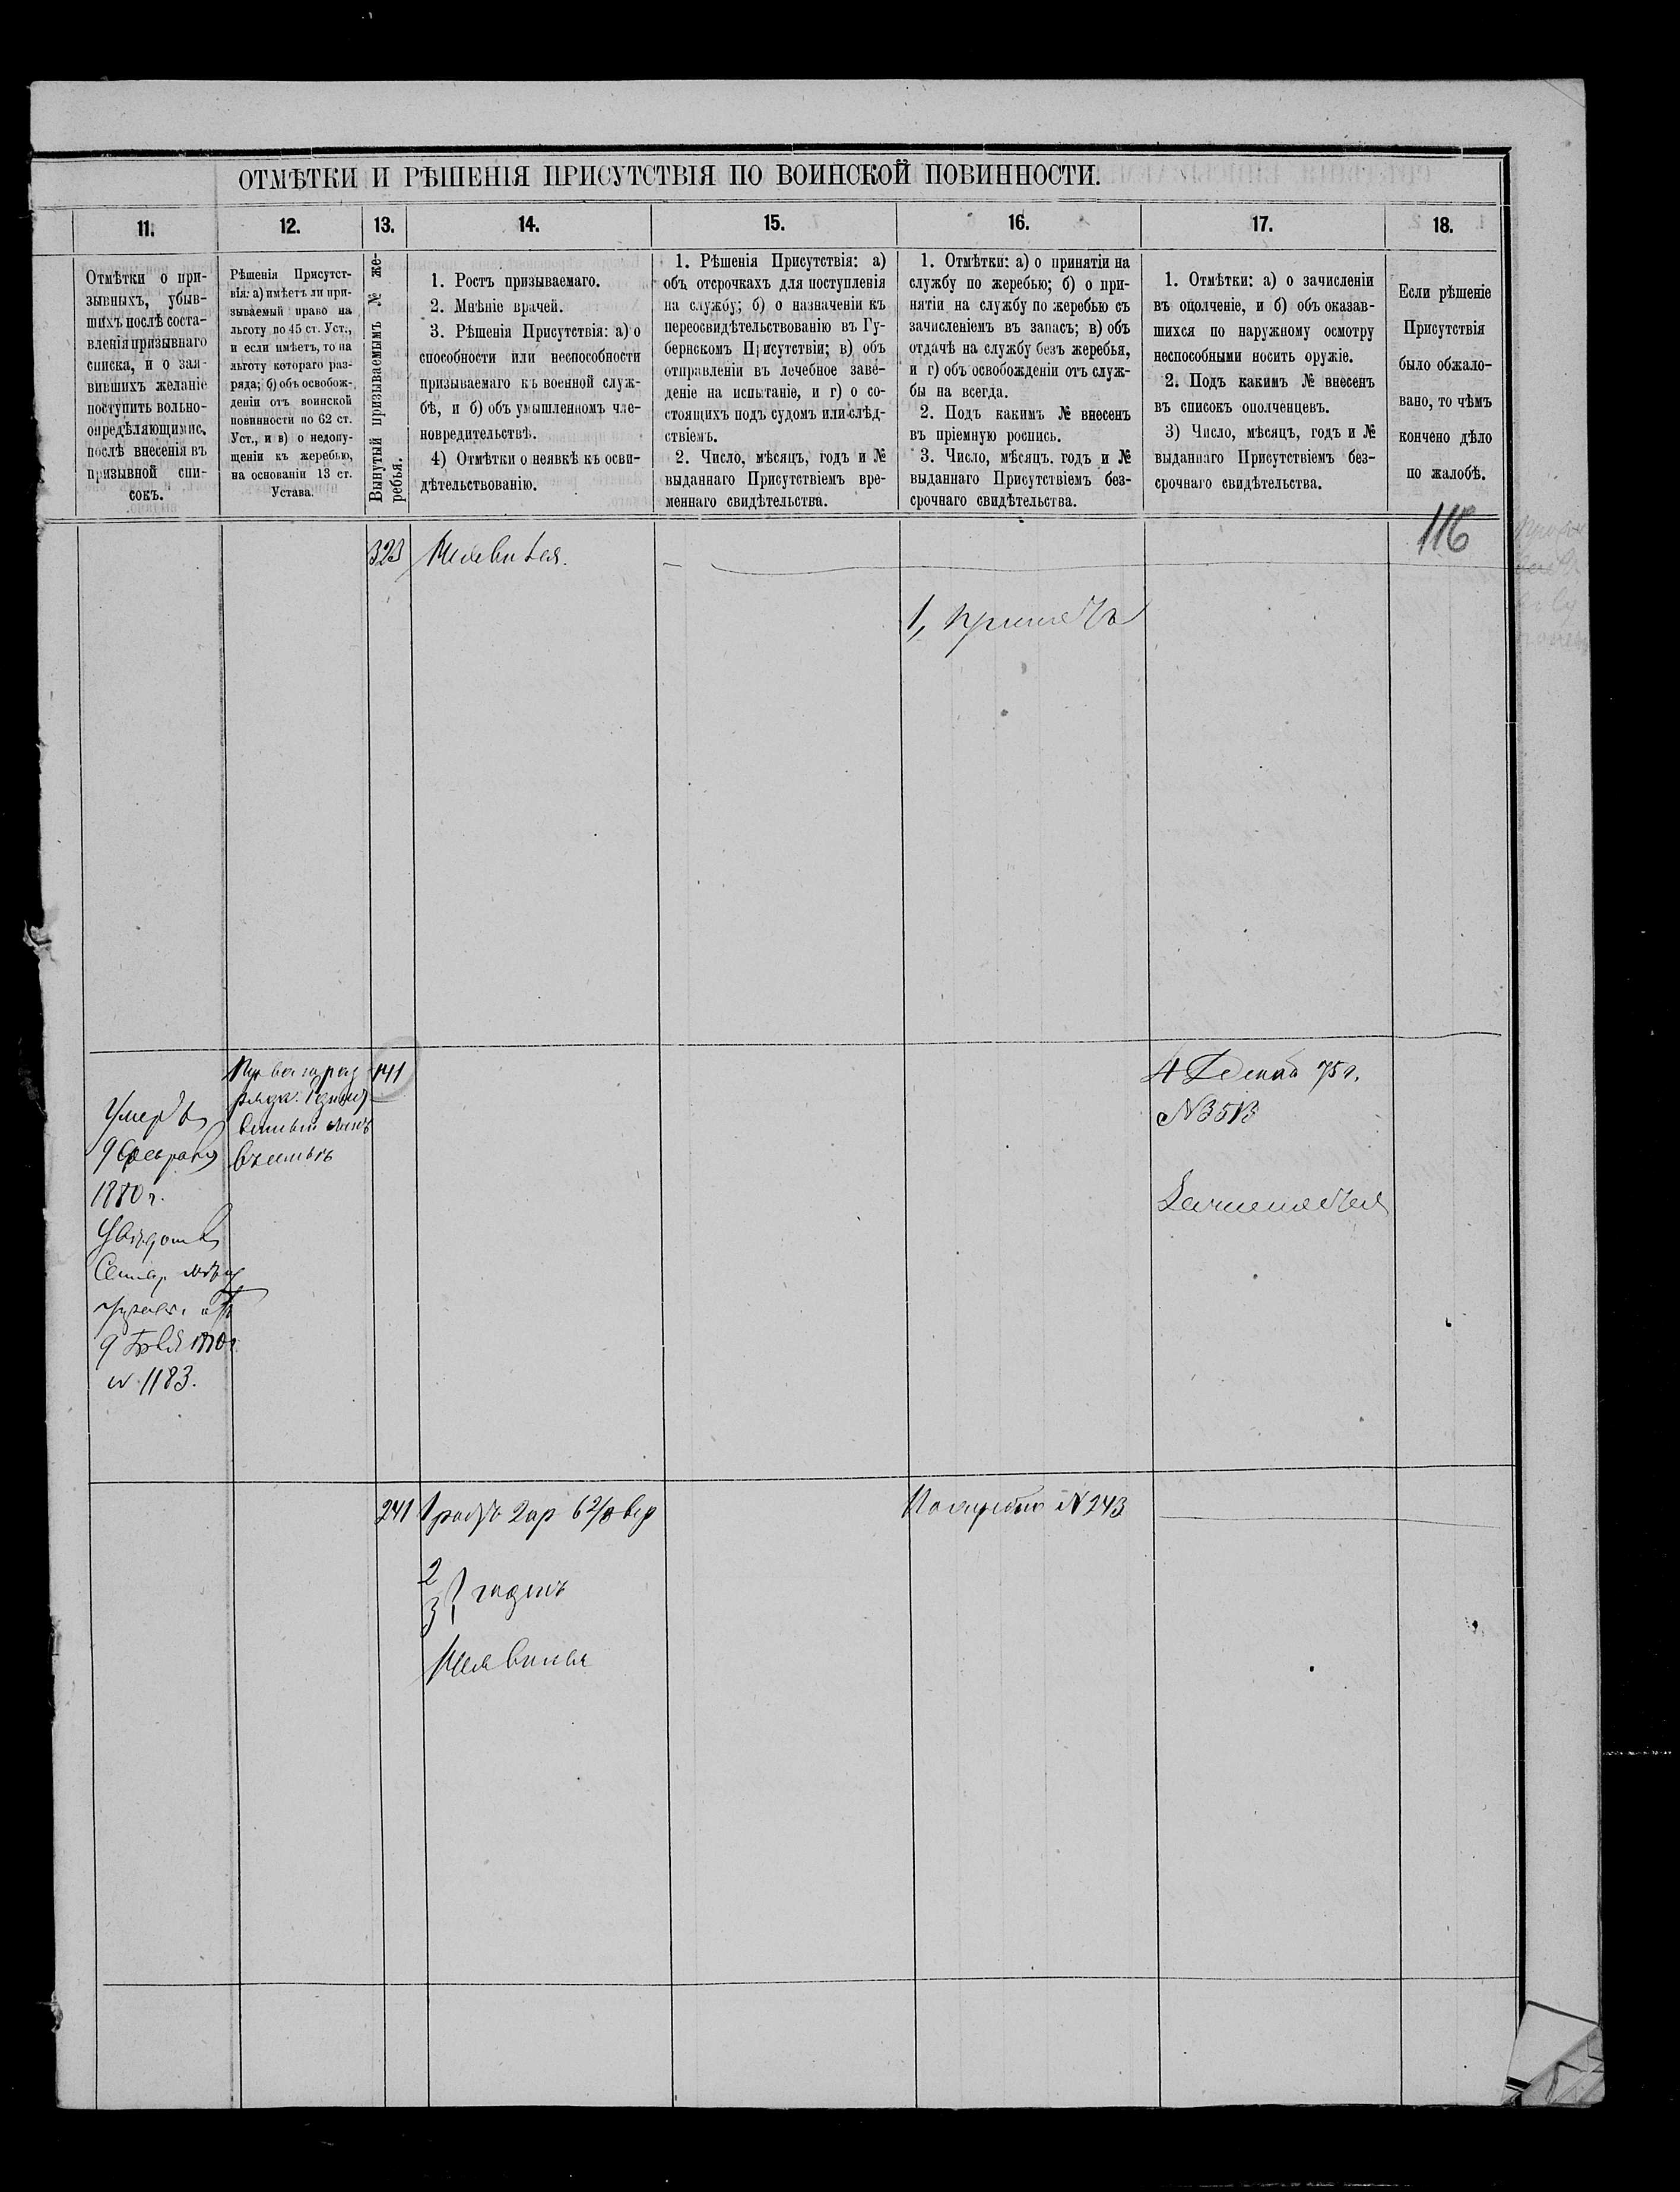 ОТМѢТКИ И РѢШЕНІЯ ПРИСУТСТВІЯ ПО ВОИНСКОЙ ПОВИННОСТИ.
11.
12.
13.
14.
15.
16.
17.
18.
Отмѣтки о при-
зывныхъ, убыв-
шихъ послѣ соста-
вленія призывнаго
списка, и о зая-
вившихъ желаніе
поступить вольно-
опредѣляющимися,
послѣ внесенія въ
призывной спи-
сокъ.
Рѣшенія Присутст-
вія: а) имѣетъ ли при-
зываемый право на
льготу по 45 ст. Уст.,
и если имѣетъ, то на
льготу котораго раз-
ряда; б) объ освобож-
деніи отъ воинской
повинности по 62 ст.
Уст., и в) о недопу-
щеніи къ жеребью,
на основаніи 13 ст.
Устава.
Вынутый призываемымъ № же-
ребья.
1. Ростъ призываемаго.
2. Мнѣніе врачей.
3. Рѣшенія Присутствія: а) о
способности или неспособности
призываемаго къ военной служ-
бѣ, и б) объ умышленномъ чле-
новредительствѣ.
4) Отмѣтки о неявкѣ къ осви-
дѣтельствованію.
1. Рѣшенія Присутствія: а)
объ отсрочкахъ для поступленія
на службу; б) о назначеніи къ
переосвидѣтельствованію въ Гу-
бернскомъ Присутствіи; в) объ
отправленіи въ лечебное заве-
деніе на испытаніе, и г) о со-
стоящихъ подъ судомъ или слѣд-
ствіемъ.
2. Число, мѣсяцъ, годъ и №
выданнаго Присутствіемъ вре-
меннаго свидѣтельства.
1. Отмѣтки: а) о принятіи на
службу по жеребью; б) о при-
нятіи на службу по жеребью съ
зачисленіемъ въ запасъ; в) объ
отдачѣ на службу безъ жеребья,
и г) объ освобожденіи отъ служ-
бы на всегда.
2. Подъ какимъ № внесенъ
въ пріемную роспись.
3. Число, мѣсяцъ, годъ и №
выданнаго Присутствіемъ без-
срочнаго свидѣтельства.
1. Отмѣтки: а) о зачисленіи
въ ополченіе, и б) объ оказав-
шихся по наружному осмотру
неспособными носить оружіе.
2. Подъ какимъ № внесенъ
въ списокъ ополченцевъ.
3) Число, мѣсяцъ, годъ и №
выданнаго Присутствіемъ без-
срочнаго свидѣтельства.
Если рѣшеніе
Присутствія
было обжало-
вано, то чѣмъ
кончено дѣло
по жалобѣ.
116
323
1, принятъ
Умеръ
9 Февраля
1880 г.
9 1880 г.
№ 1183.
Перваго раз
ряда
въ семьѣ
141
4 Декаб 75 г.
№ 3513
241
1 ростъ 2 ар 6 2/8 вер
2
3 годенъ
№ 243